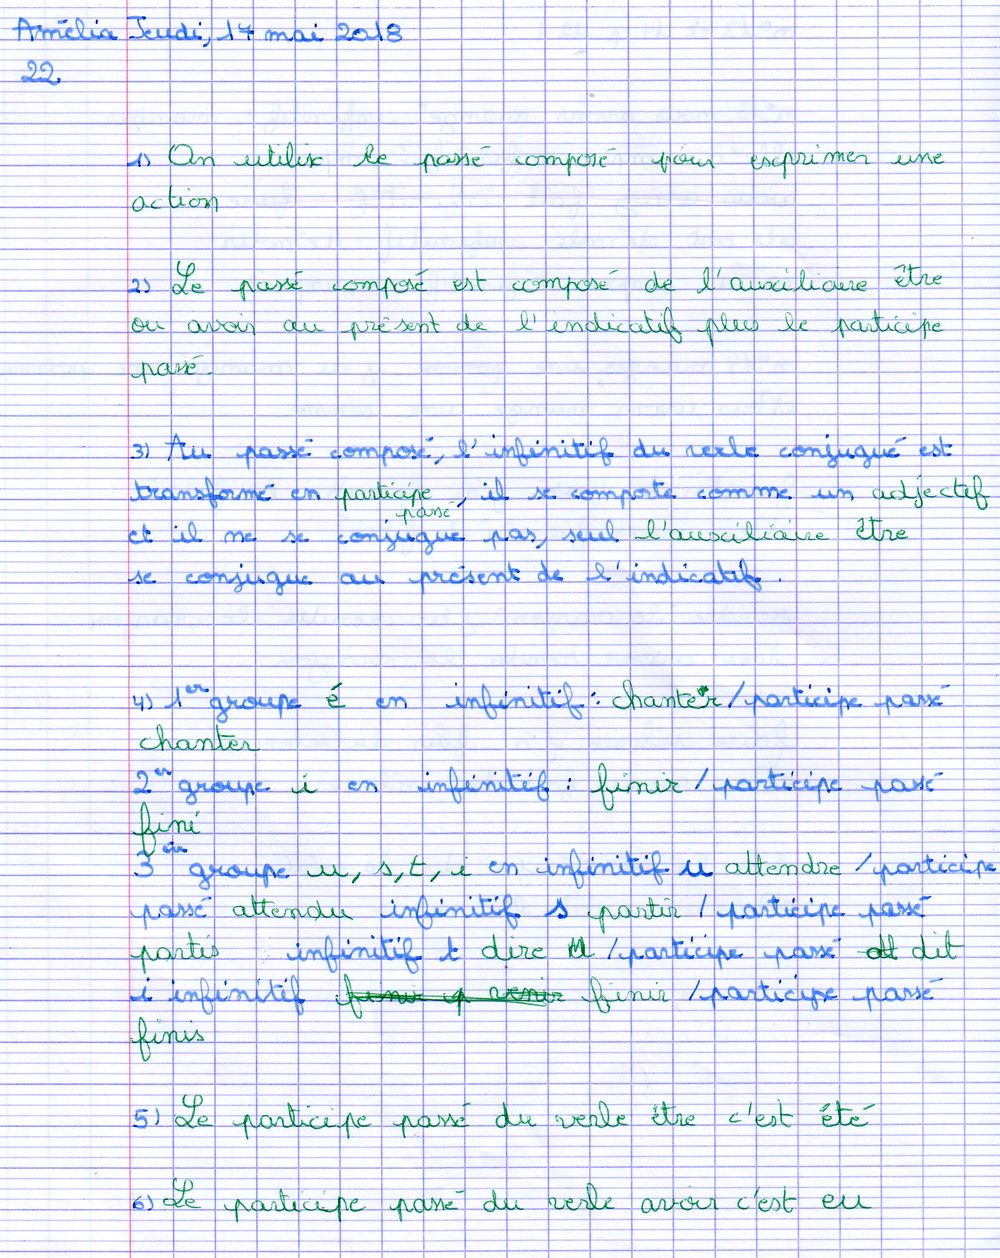 Amélia Jeudi, 17 mai 2018
22
1) On utilise le passé composé pour exprimer une
action
2) Le passé composé est composé de l'auxiliaire être
ou avoir au présent de l'indicatif plus le participe
passé.
3) Au passé composé, l'infinitif du verbe conjugué est
transformé en participe passé, il se comporte comme un adjectif
et il ne se conjugue pas, seul l'auxiliaire être
se conjugue au présent de l'indicatif.
4) 1er groupe é en infinitif : chanter / participe passé
chanter
2er groupe i en infinitif : finir / participe passé
fini
3 groupe u, s, t, i en infinitif u attendre / participe
passé attendu infinitif s partir / participe passé
partis infinitif t dire / participe passé dit
i infinitif finir / participe passé
finis
5) Le participe passé du verbe être c'est été
6) Le participe passé du verbe avoir c'est eu